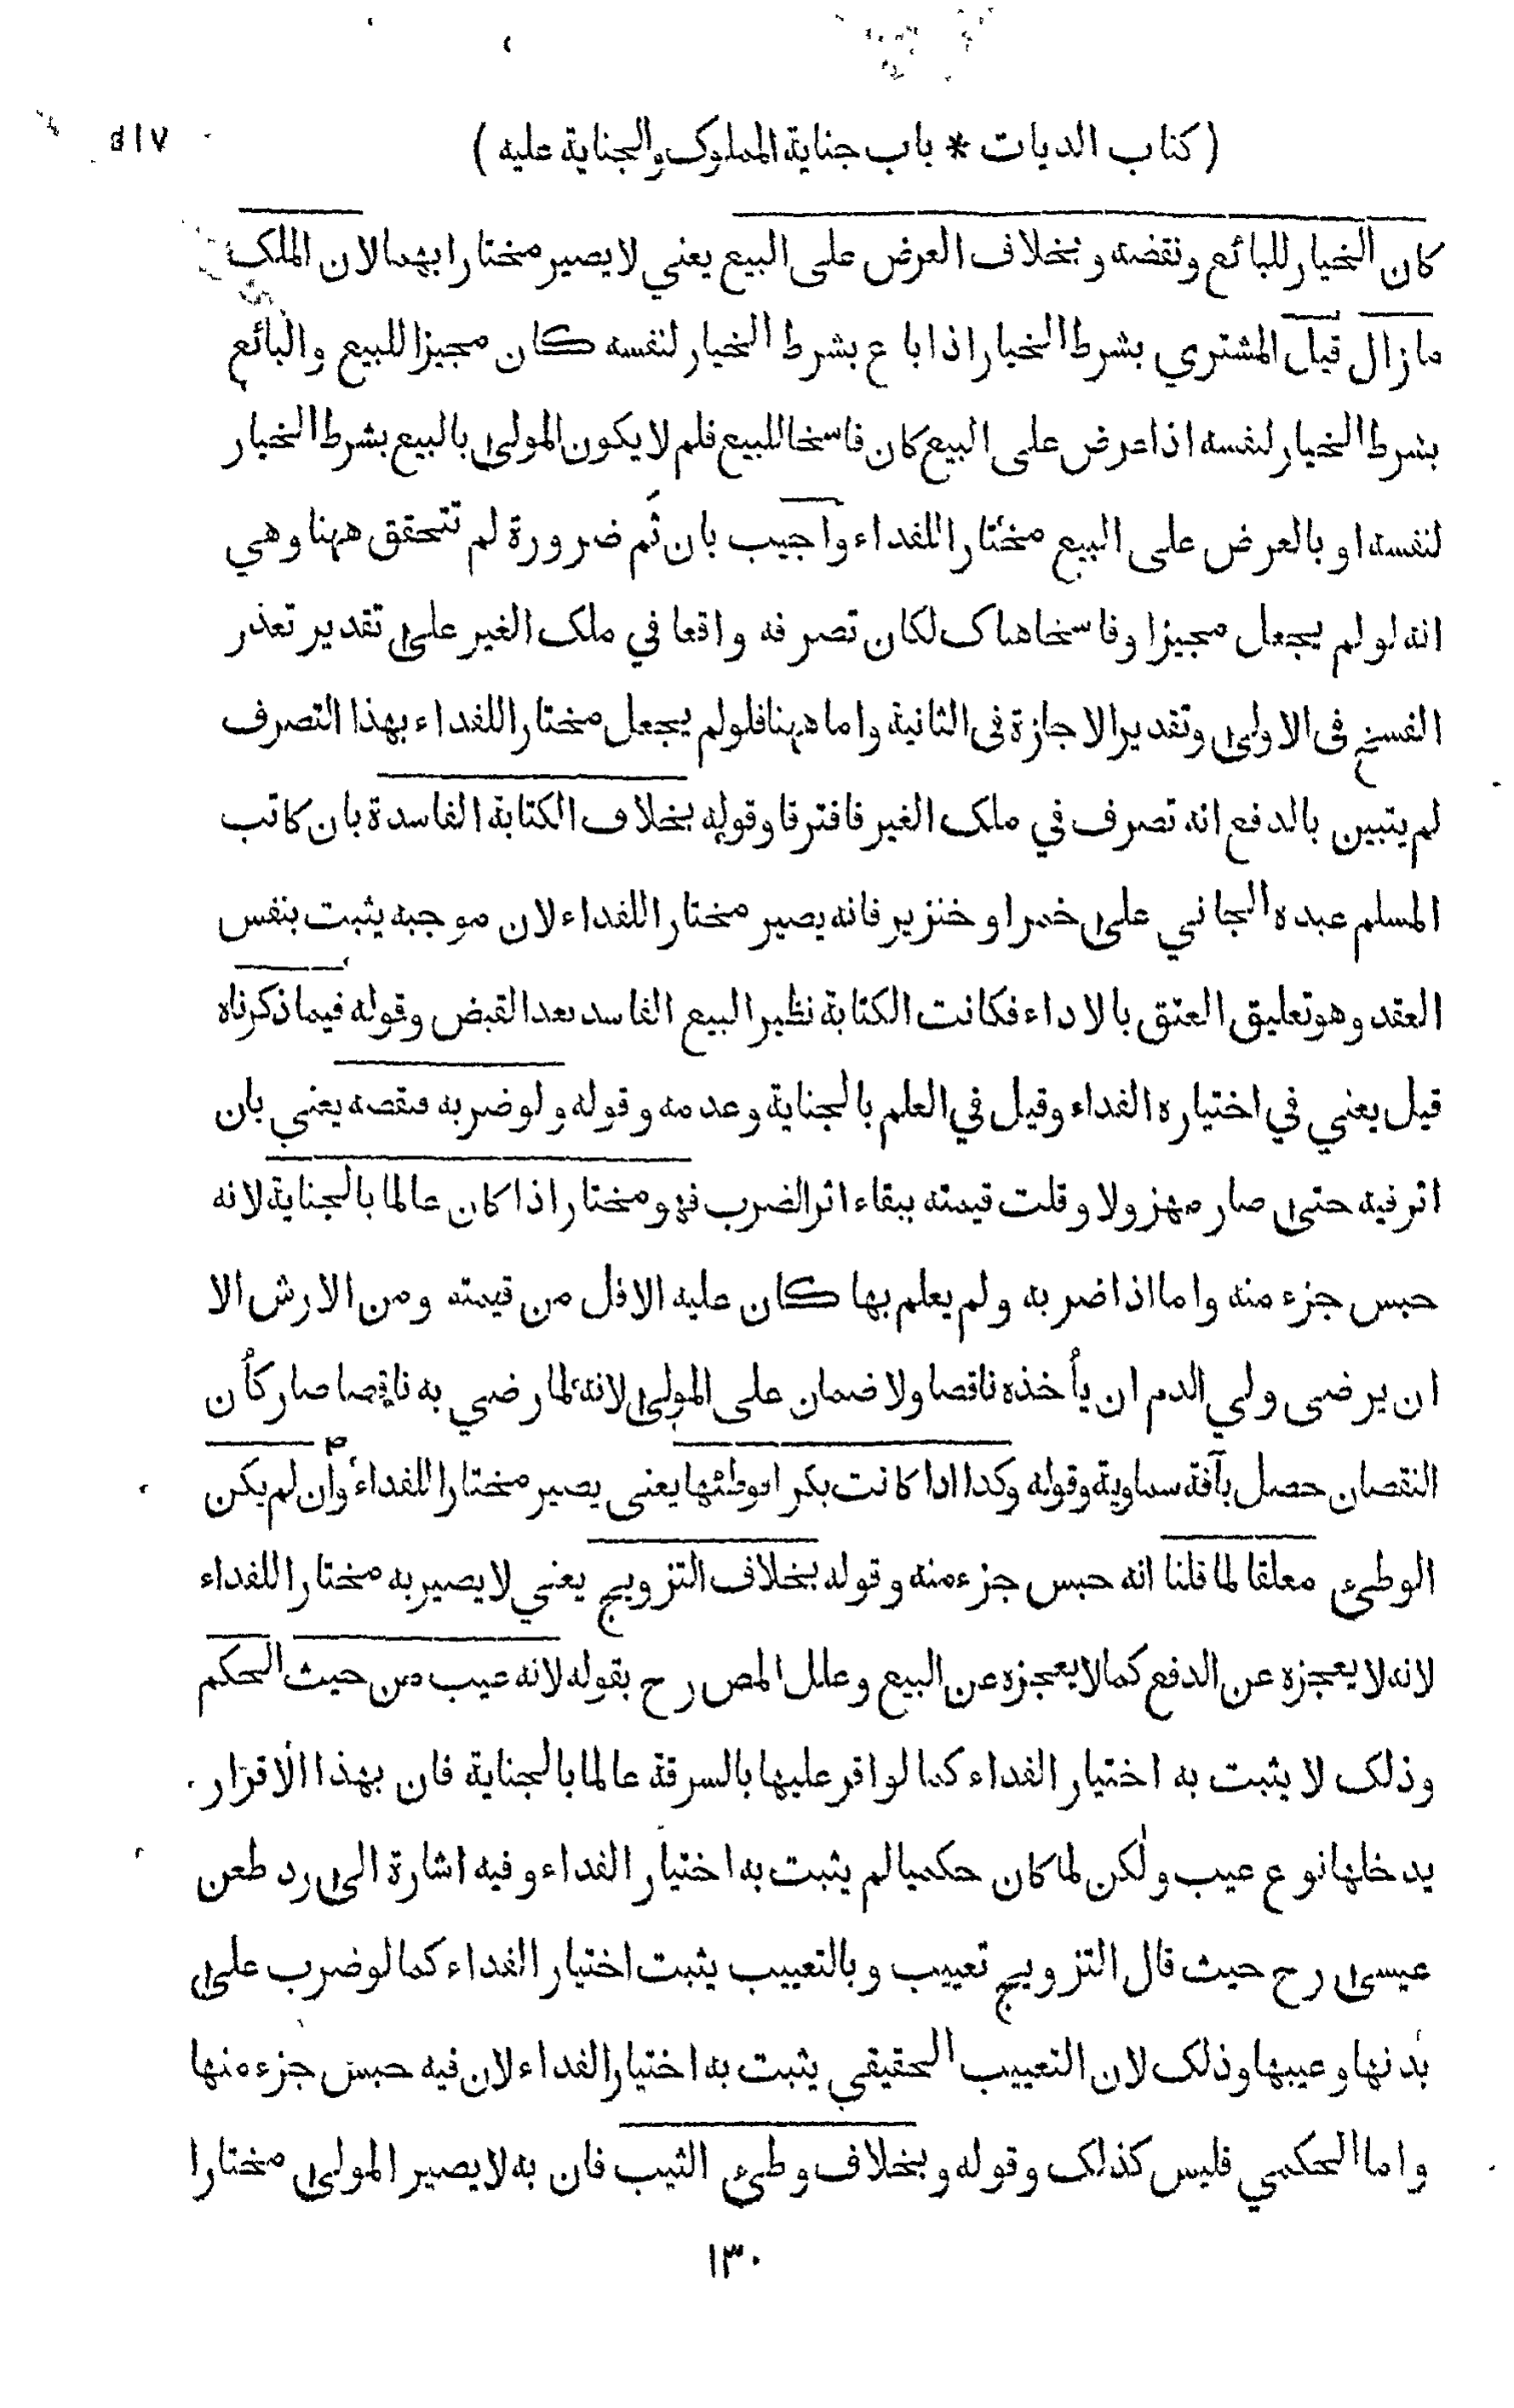 ( كتاب الديات * باب جناية المملوك والجناية عليه )
٥١٧
كان الخيار للبائع ونقضه وبخلاف العرض على البيع يعني لا يصير مختارا بهما لان الملك
ما زال قيل المشتري بشرط الخيار اذا باع بشرط الخيار لنفسه كان مجيزا للبيع والبائع
بشرط الخيار لنفسه اذا عرض على البيع كان فاسخا للبيع فلم لا يكون المولى بالبيع بشرط الخيار
لنفسه او بالعرض على البيع مختارا للفداء واجيب بان ثَم ضرورة لم تتحقق ههنا وهي
انه لو لم يجعل مجيزا وفاسخا هناك لكان تصرفه واقعا في ملك الغير على تقدير تعذر
الفسخ في الاولى وتقدير الاجازة في الثانية واما ههنا فلو لم يجعل مختارا للفداء بهذا التصرف
لم يتبين بالدفع انه تصرف في ملك الغير فافترقا وقوله بخلاف الكتابة الفاسدة بان كاتب
المسلم عبده الجاني على خمر او خنزير فانه يصير مختارا للفداء لان موجبه يثبت بنفس
العقد وهو تعليق العتق بالاداء فكانت الكتابة نظير البيع الفاسد بعد القبض وقوله فيما ذكرناه
قيل يعني في اختياره الفداء وقيل في العلم بالجناية وعدمه وقوله ولو ضربه فنقصه يعني بان
اثر فيه حتى صار مهزولا وقلت قيمته ببقاء اثر الضرب فهو مختار اذا كان عالما بالجناية لانه
حبس جزء منه واما اذا ضربه ولم يعلم بها كان عليه الاقل من قيمته ومن الارش الا
ان يرضى ولي الدم ان يأخذه ناقصا ولا ضمان على المولى لانه لما رضي به ناقصا صار كأن
النقصان حصل بآفة سماوية وقوله وكذا اذا كانت بكرا فوطئها يعني يصير مختارا للفداء وأن لم يكن
الوطىء معلقا لما قلنا انه حبس جزء منه وقوله بخلاف التزويج يعني لا يصير به مختارا للفداء
لانه لا يعجزه عن الدفع كما لا يعجزه عن البيع وعلل المص رح بقوله لانه عيب من حيث الحكم
وذلك لا يثبت به اختيار الفداء كما لو اقر عليها بالسرقة عالما بالجناية فان بهذا الاقرار
يدخلها نوع عيب ولكن لما كان حكميا لم يثبت به اختيار الفداء وفيه اشارة الى رد طعن
عيسى رح حيث قال التزويج تعييب وبالتعييب يثبت اختيار الفداء كما لو ضرب على
بدنها وعيبها وذلك لان التعييب الحقيقي يثبت به اختيار الفداء لان فيه حبس جزء منها
واما الحكمي فليس كذلك وقوله وبخلاف وطىء الثيب فان به لا يصير المولى مختارا
١٣٠